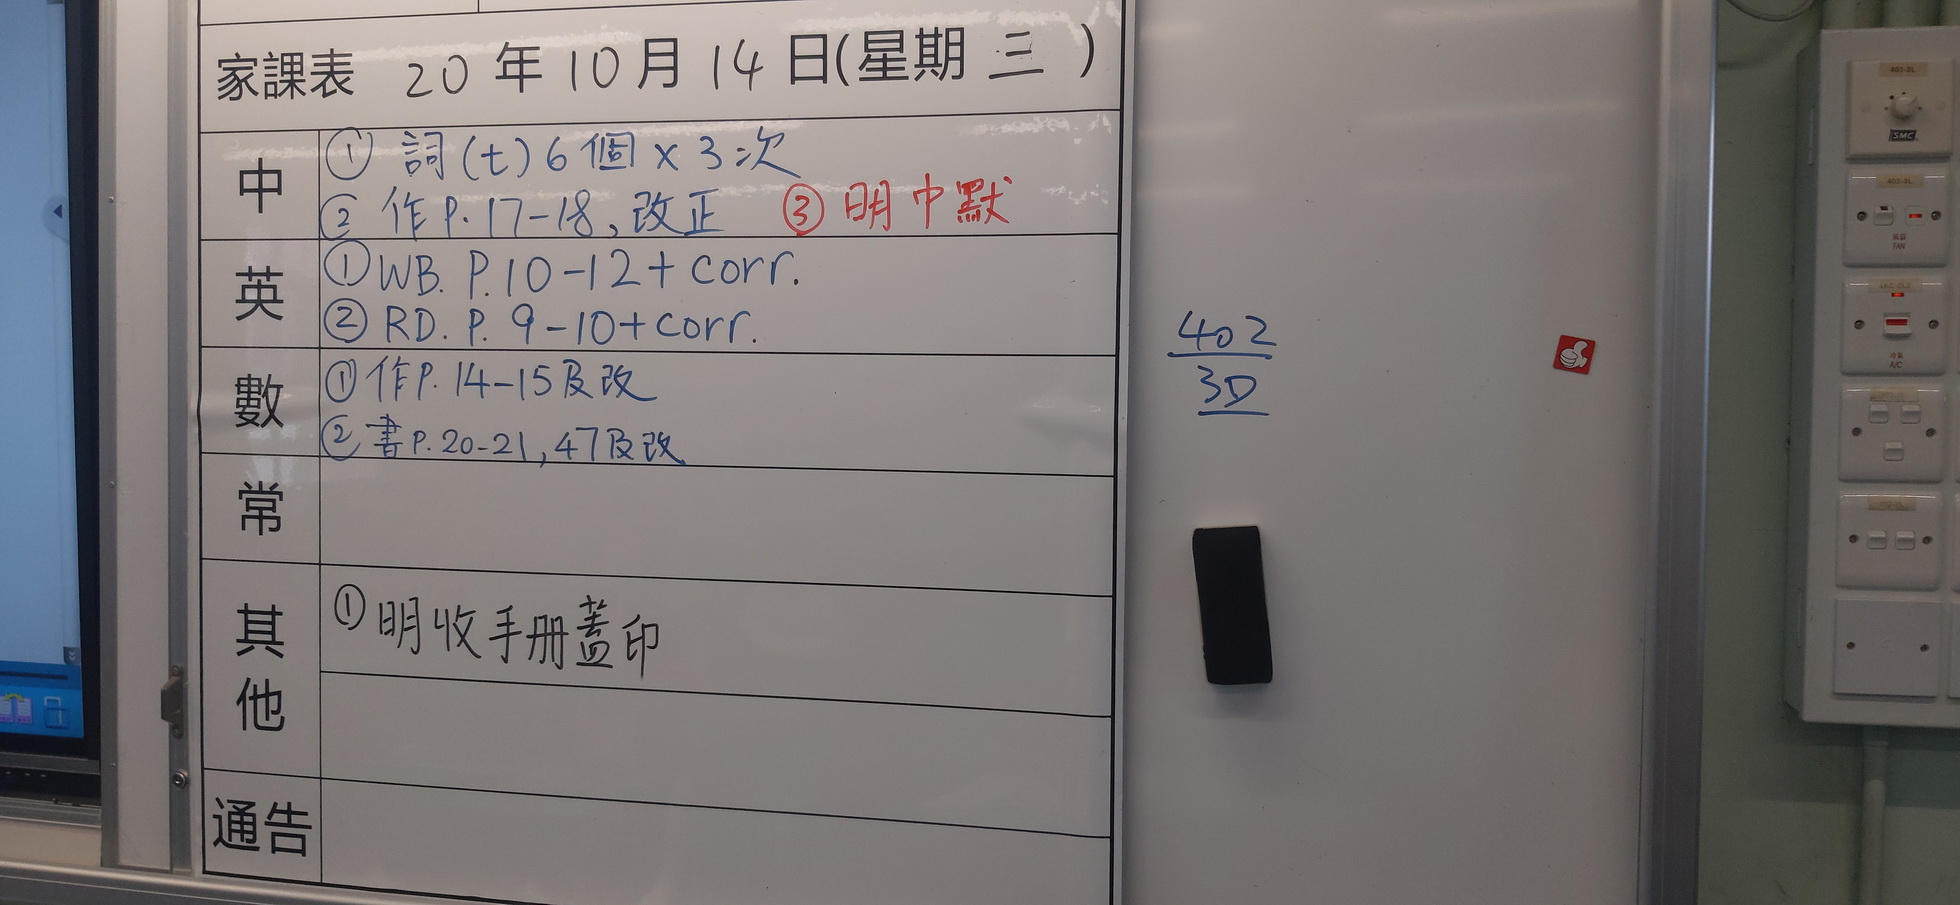 家課表 20 年 10 月 14 日(星期 三 )
中
① 詞(七)6個 x 3次
② 作P.17-18,改正 ③ 明中默
英
① WB. P.10-12+corr.
② RD. P. 9-10+corr.
數
① 作P.14-15及改
② 書P.20-21,47及改
常
其他
① 明收手册蓋印
通告
402
3D
SMC
FAN
A/C